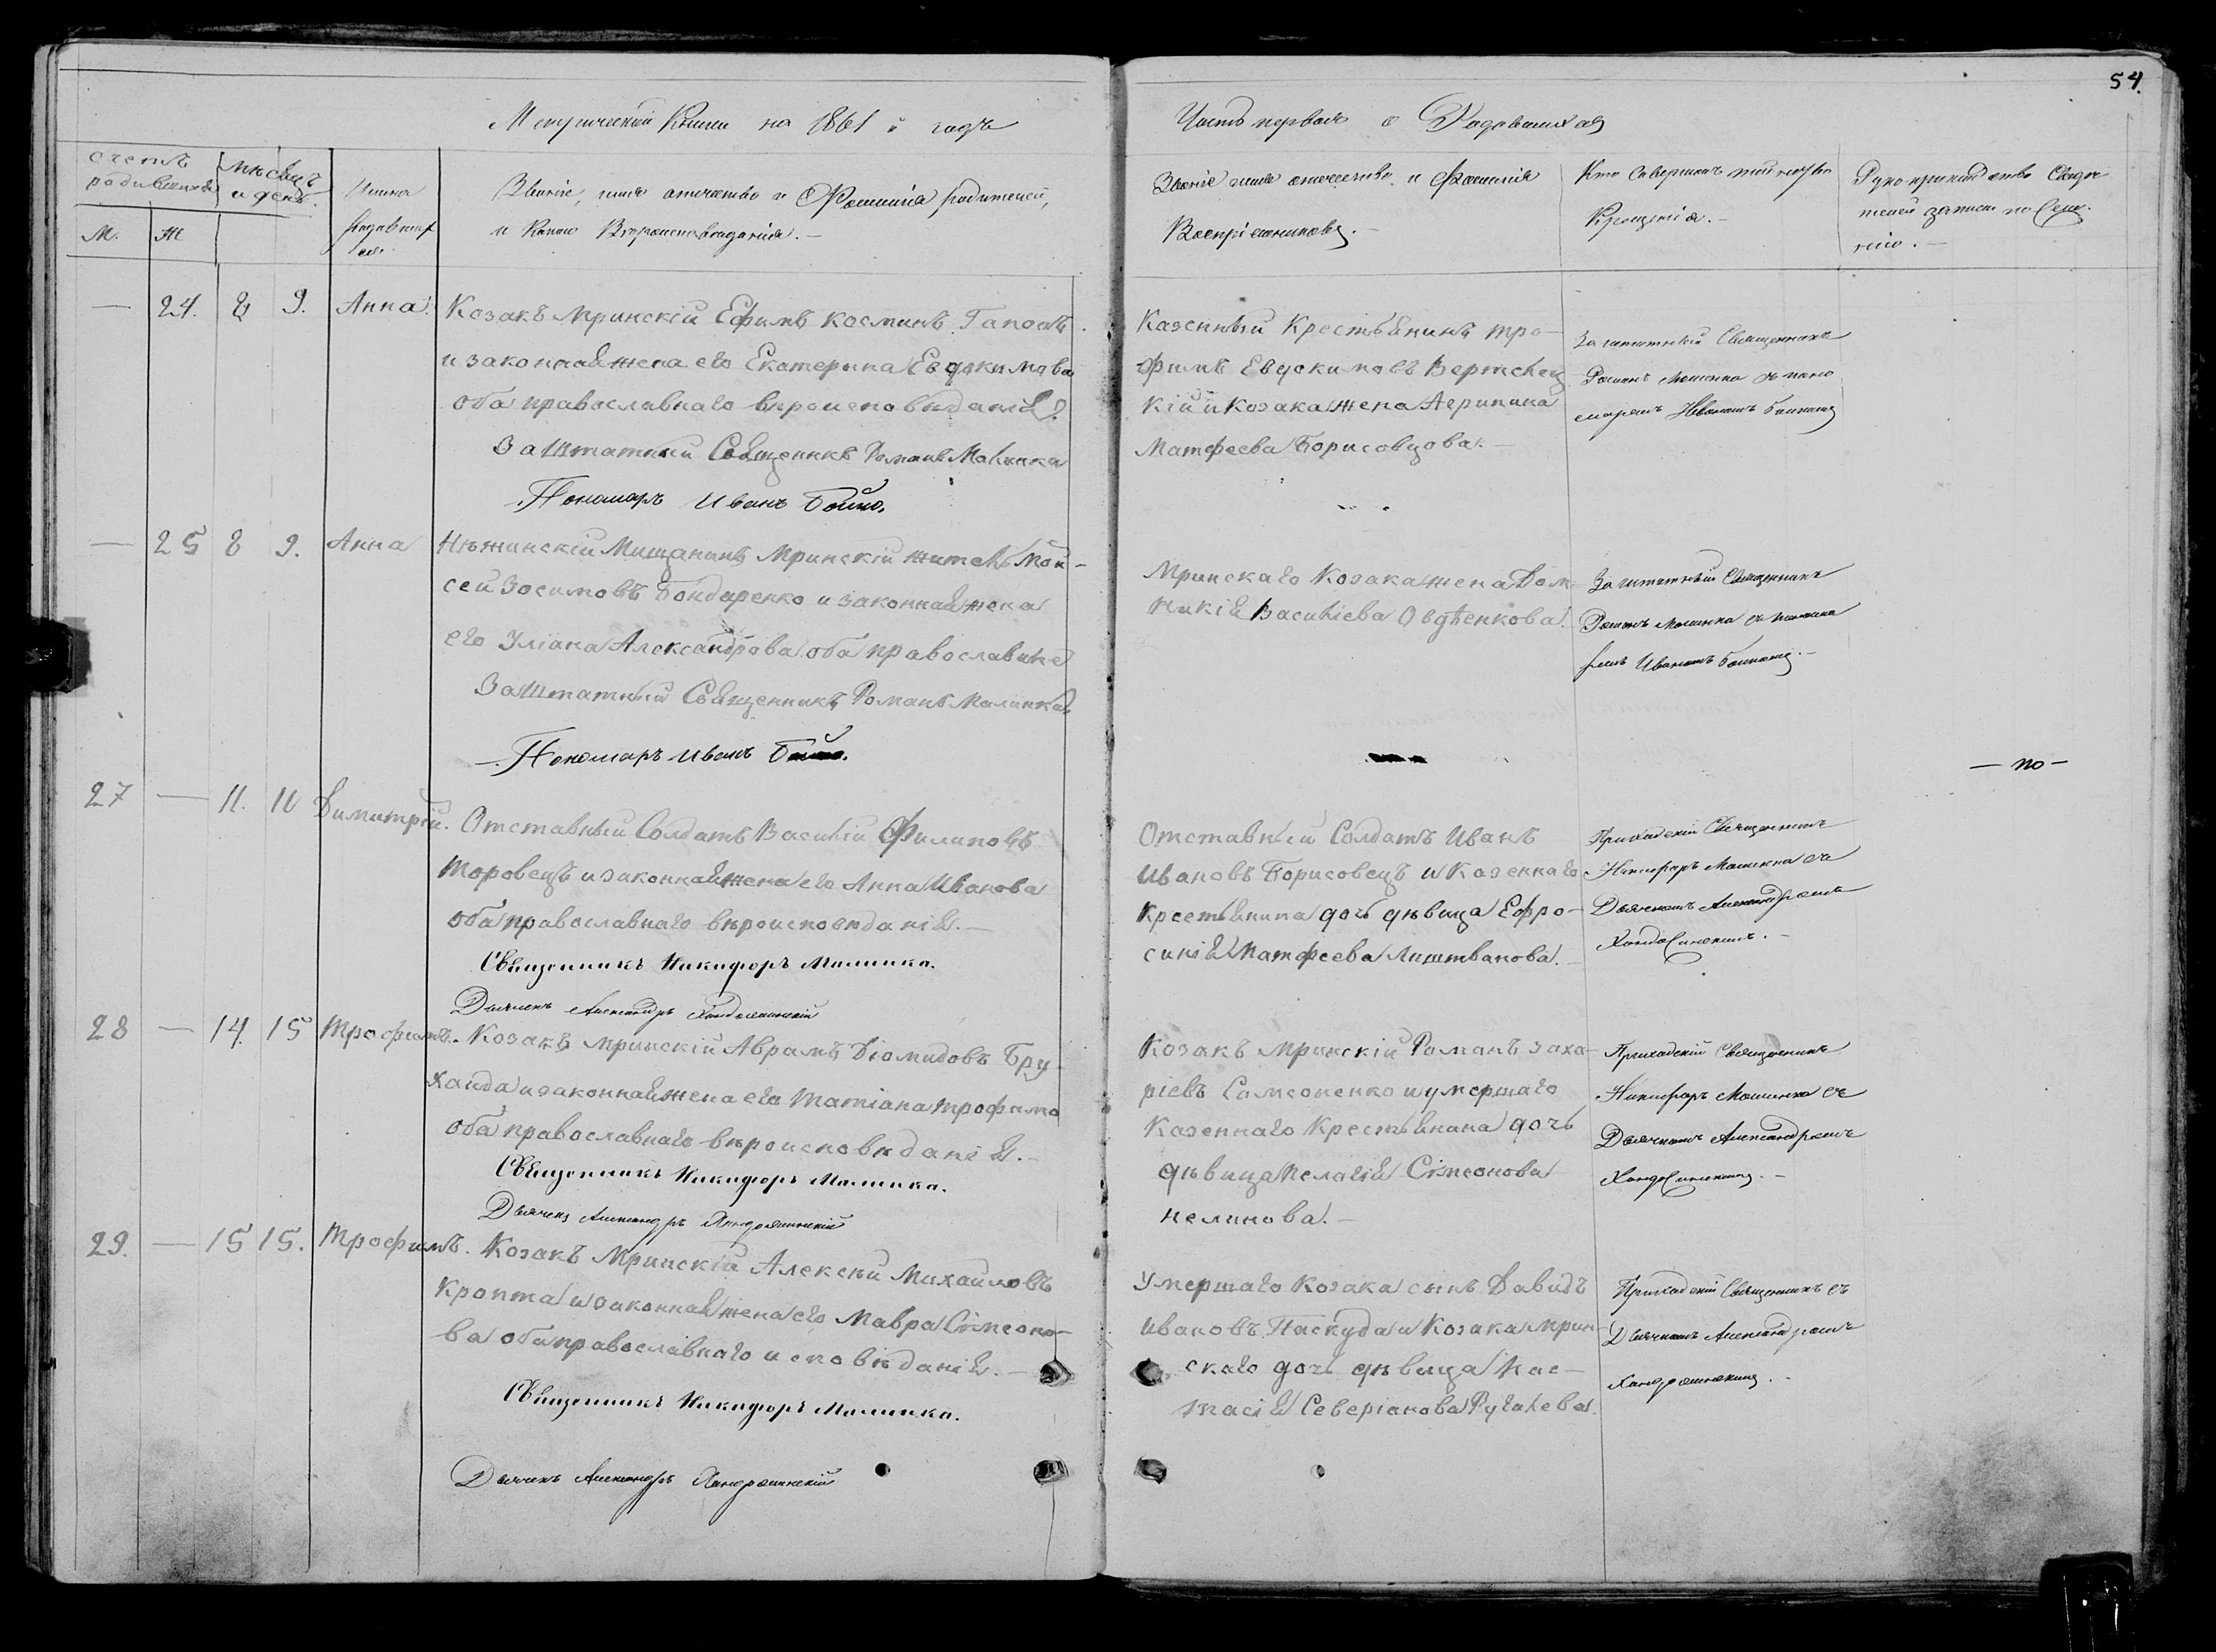 54.
Метрической Книги на 1861 й годъ
Часть первая о Родовшихся
счетъ родившихся
М. Ж
мѣсяцъ и день.
Имена Родовшихся
Званіе, имя отчество и Фамилія родителей,
и Какого Вѣроисповѣданія. —
Званіе имя отчество и Фамилія
Воспріемниковъ. —
Кто совершалъ таинство
Крещенія. —
Рукоприкладство Свидѣ
телей записи по Жела
нію. —
— 24. 8 9. Анна.
Козакъ Мринскій Ефимъ Косминъ Гапонъ.
и законная жена его Екатерина Евдокимова
оба православнаго вѣроисповѣданія.
Заштатный Священникъ Романъ Малинка
Пономарь Иванъ Бойко.
Казенный Крестьянинъ Тро-
фимъ Евдокимовъ
кій и Козака жена Агрипина
Матфеева Борисовцова. —
Заштатный Священникъ
Романъ Малинка съ поно
маремъ Иваномъ Бойкомъ
— 25 8 9. Анна
Нѣжинскій Мищанинъ Мринскій житель Мой-
сей Зосимовъ Бондаренко и законная жена
его Уліана Александрова оба православные
Заштатный Священникъ Романъ Малинка
Пономарь Иванъ Бойко.
Мринскаго Козака жена Дом
никія Василіева Овдѣенкова.
Заштатный Священникъ
Романъ Малинка съ понома
ремъ Иваномъ Бойкомъ. —
— по —
27 — 11. 11 Димитрій.
Отставный Солдатъ Василій Филиповъ
Торовецъ и законная жена его Анна Иванова
оба православнаго вѣроисповѣданія. —
Священникъ Никифоръ Малинка.
Дьячекъ Александръ Хандожинскій
Отставный Солдатъ Иванъ
Ивановъ Борисовецъ и Казеннаго
Крестьянина дочь дѣвица Ефро-
синія Матфеева Лиштванова. —
Приходскій Священникъ
Никифоръ Малинка съ
Дьячкомъ Александромъ
Хандожинскимъ. —
28 — 14. 15 Трофимъ.
Козакъ Мринскій Аврамъ Діомидовъ Бру-
ханда и законная жена его Татіана Трофимо
оба православнаго вѣроисповѣданія. —
Священникъ Никифоръ Малинка.
Дьячекъ Александръ Хандожинскій
Козакъ Мринскій Романъ Заха-
ріевъ Самсоненко и умершаго
Казеннаго Крестьянина дочь
дѣвица Пелагія Сімеонова
Пелинова. —
Приходскій Священникъ
Никифоръ Малинка съ
Дьячкомъ Александромъ
Хандожинскимъ. —
29. — 15 15. Трофимъ.
Козакъ Мринскій Алексѣй Михайловъ
Кропта и законная жена его Мавра Сімеоно-
ва оба православнаго исповѣданія. —
Священникъ Никифоръ Малинка.
Дьячекъ Александръ Хандожинскій
Умершаго Козака сынъ Давидъ
Ивановъ Паскуда и Козака Мрин-
скаго дочь дѣвица Нас-
тасія Северіанова
Приходскій Священникъ съ
Дьячкомъ Александромъ
Хандожинскимъ. —